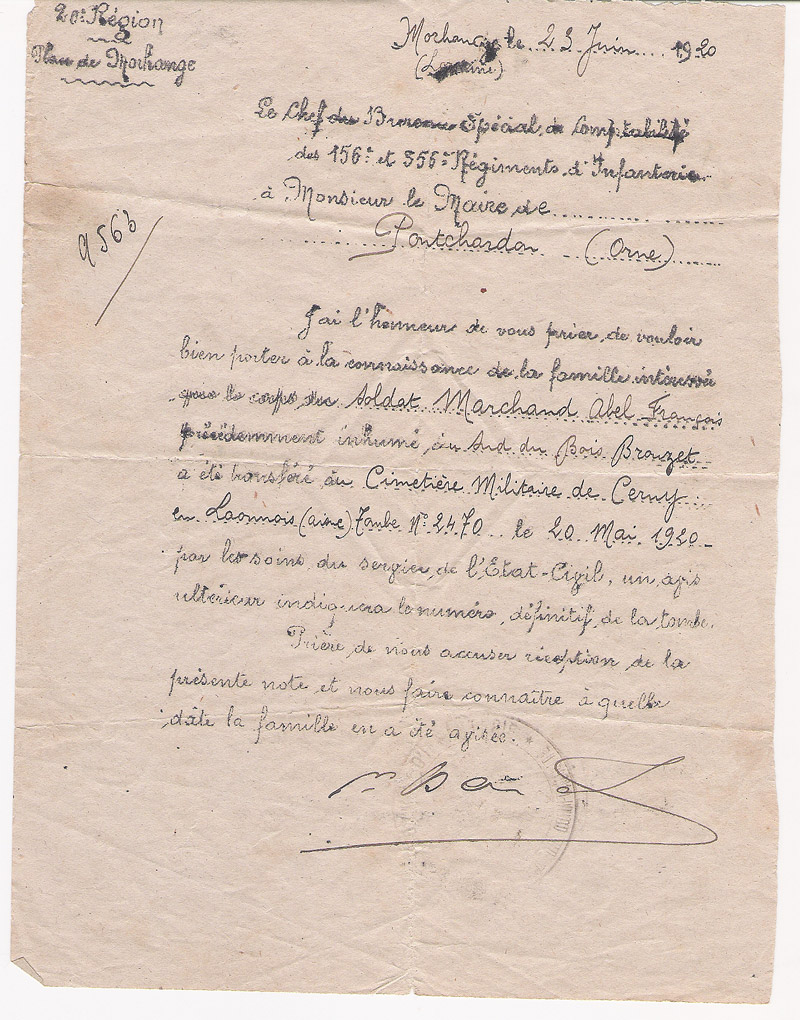 20e Région
Place de Morhange
Morhange le 23 Juin 1920
(Lorraine)
Le Chef du Bureau Spécial de Comptabilité
des 156e et 356e Régiments d'Infanterie
à Monsieur le Maire de
Pontchardon (Orne)
9563
J'ai l'honneur de vous prier de vouloir
bien porter à la connaissance de la famille intéressée
que le corps du Soldat Marchand Abel François
précédemment inhumé au Sud du Bois Brouzet
a été transféré au Cimetière Militaire de Cerny
en Laonnois (aisne) Tombe N° 2470 le 20 Mai 1920
par les soins du service de l'Etat-Civil, un avis
ultérieur indiquera le numéro définitif de la tombe.
Prière de nous accuser réception de la
présente note et nous faire connaître à quelle
date la famille en a été avisée.